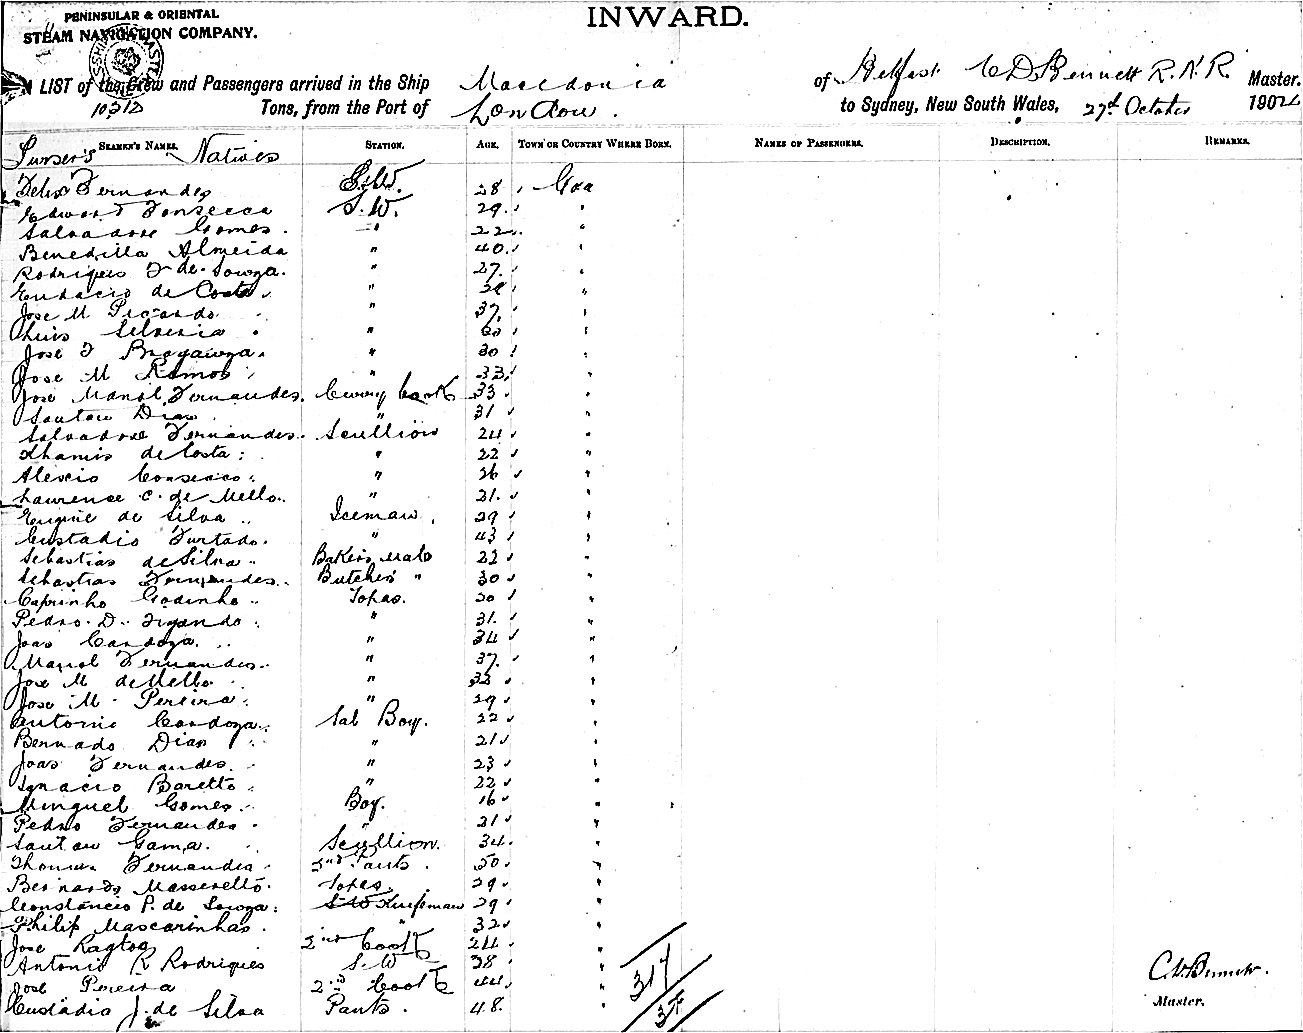 PENINSULAR & ORIENTAL
STEAM NAVIGATION COMPANY.
INWARD.
A LIST of the Crew and Passengers arrived in the Ship Macedonia of Belfast C D Bennett R.N.R. Master.
10512 Tons, from the Port of London. to Sydney, New South Wales, 27th October 1904
SEAMEN'S NAMES. STATION. AGE. TOWN OR COUNTRY WHERE BORN. NAMES OF PASSENGERS. DESCRIPTION. REMARKS.
Purser's Natives
Felix Fernandes G.S.W. 28 Goa
Edward Fonsecca S.W. 29 "
Salvadore Gomes. " 22 "
Benedilla Almeida " 40 "
Rodrigues F de Souza. " 27 "
de Costa " "
Jose M " 37 "
Luis " 30 "
Jose F Bragawza. " 30 "
Jose M Ramos " 33 "
Jose Manol Fernandes. Curry Cook 33 "
Santan Dias " 31 "
Salvadore Fernandes. Scullion 24 "
de Costa " 22 "
Alexio " 26 "
Laurence C. de Mello. " 21 "
Eugine de Silva Iceman 29 "
Custadio Furtado. " 43 "
Sebastias de Silva Bakers Mate 22 "
Sebastias Fernandes. Butchers " 30 "
Caprinho Godinho Topas. 20 "
Pedro D. " 31 "
Joas Cardoza. " 34 "
Manol Fernandes. " 37 "
Jose M de Mello " 33 "
Jose M. Pereira " 29 "
Antonio Cardoza. Sal Boy. 22 "
Bernado Dias " 21 "
Joas Fernandes. " 23 "
Ignacio Baretto " 22 "
Minguel Gomes. Boy. 16 "
Pedro Fernandes " 21 "
Santan Gama. Scullion. 34 "
Fernandes 2nd Pants. 50 "
Bernardo Topas. 29 "
Constancio P. de Souza. 29 "
Philip Mascarinhas. " 32 "
Jose 2nd Cook 24 "
Antonio R Rodrigues S.W 38 "
Jose Pereira 2nd Cook 44 "
Custadio J. de Silva Pants. 48 "
317
37
C.D. Bennett.
Master.